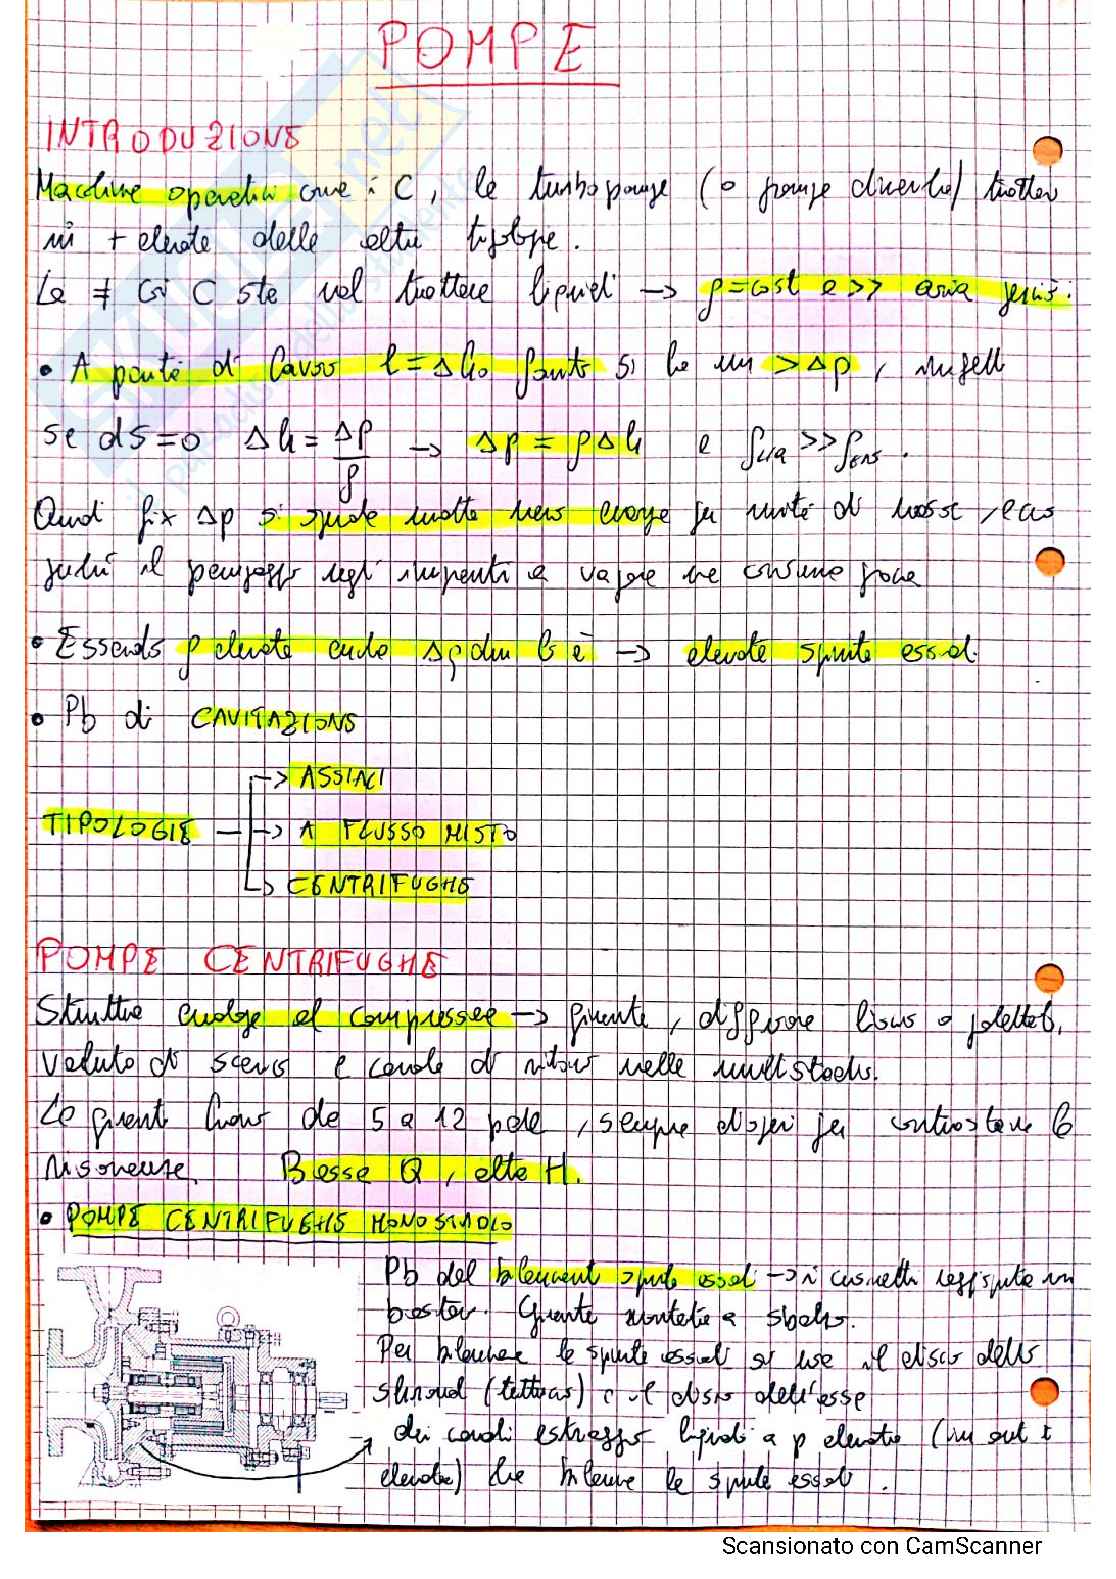 POMPE
INTRODUZIONE
Macchine operatrici come i C, le turbopompe (o pompe dinamiche) trattano
più elevate delle altre tipologie.
La ≠ coi C sta nel trattare liquidi → ρ=cost e >> aria
• A parità di lavoro l = Δh₀ fornito si ha un > Δp, infatti
se ds=0 Δh = Δp/ρ → Δp = ρΔh e ρLIQ >> ρGAS.
Quindi fix Δp si spende molta meno energia per unità di massa, ecco
perché il pompaggio negli impianti a vapore ne consuma poca
• Essendo ρ elevata anche Δp lo è → elevate spinte assiali
• Pb di CAVITAZIONE
→ ASSIALI
TIPOLOGIE → A FLUSSO MISTO
→ CENTRIFUGHE
POMPE CENTRIFUGHE
Struttura analoga al compressore → girante, diffusore liscio o palettato,
voluta di scarico e canale di ritorno nelle multistadio.
Le giranti hanno da 5 a 12 pale, sempre dispari per contrastare la
risonanza. Basse Q, alte H.
• POMPE CENTRIFUGHE MONOSTADIO
Pb del bilanciamento spinte assiali → i cuscinetti reggispinta non
bastano. Girante montata a sbalzo.
Per bilanciare le spinte assiali si usa il disco dello
shroud e il disco dell'asse
dei canali estraggono liquido a p elevata (in out è
elevata) che bilancia le spinte assiali.
Scansionato con CamScanner